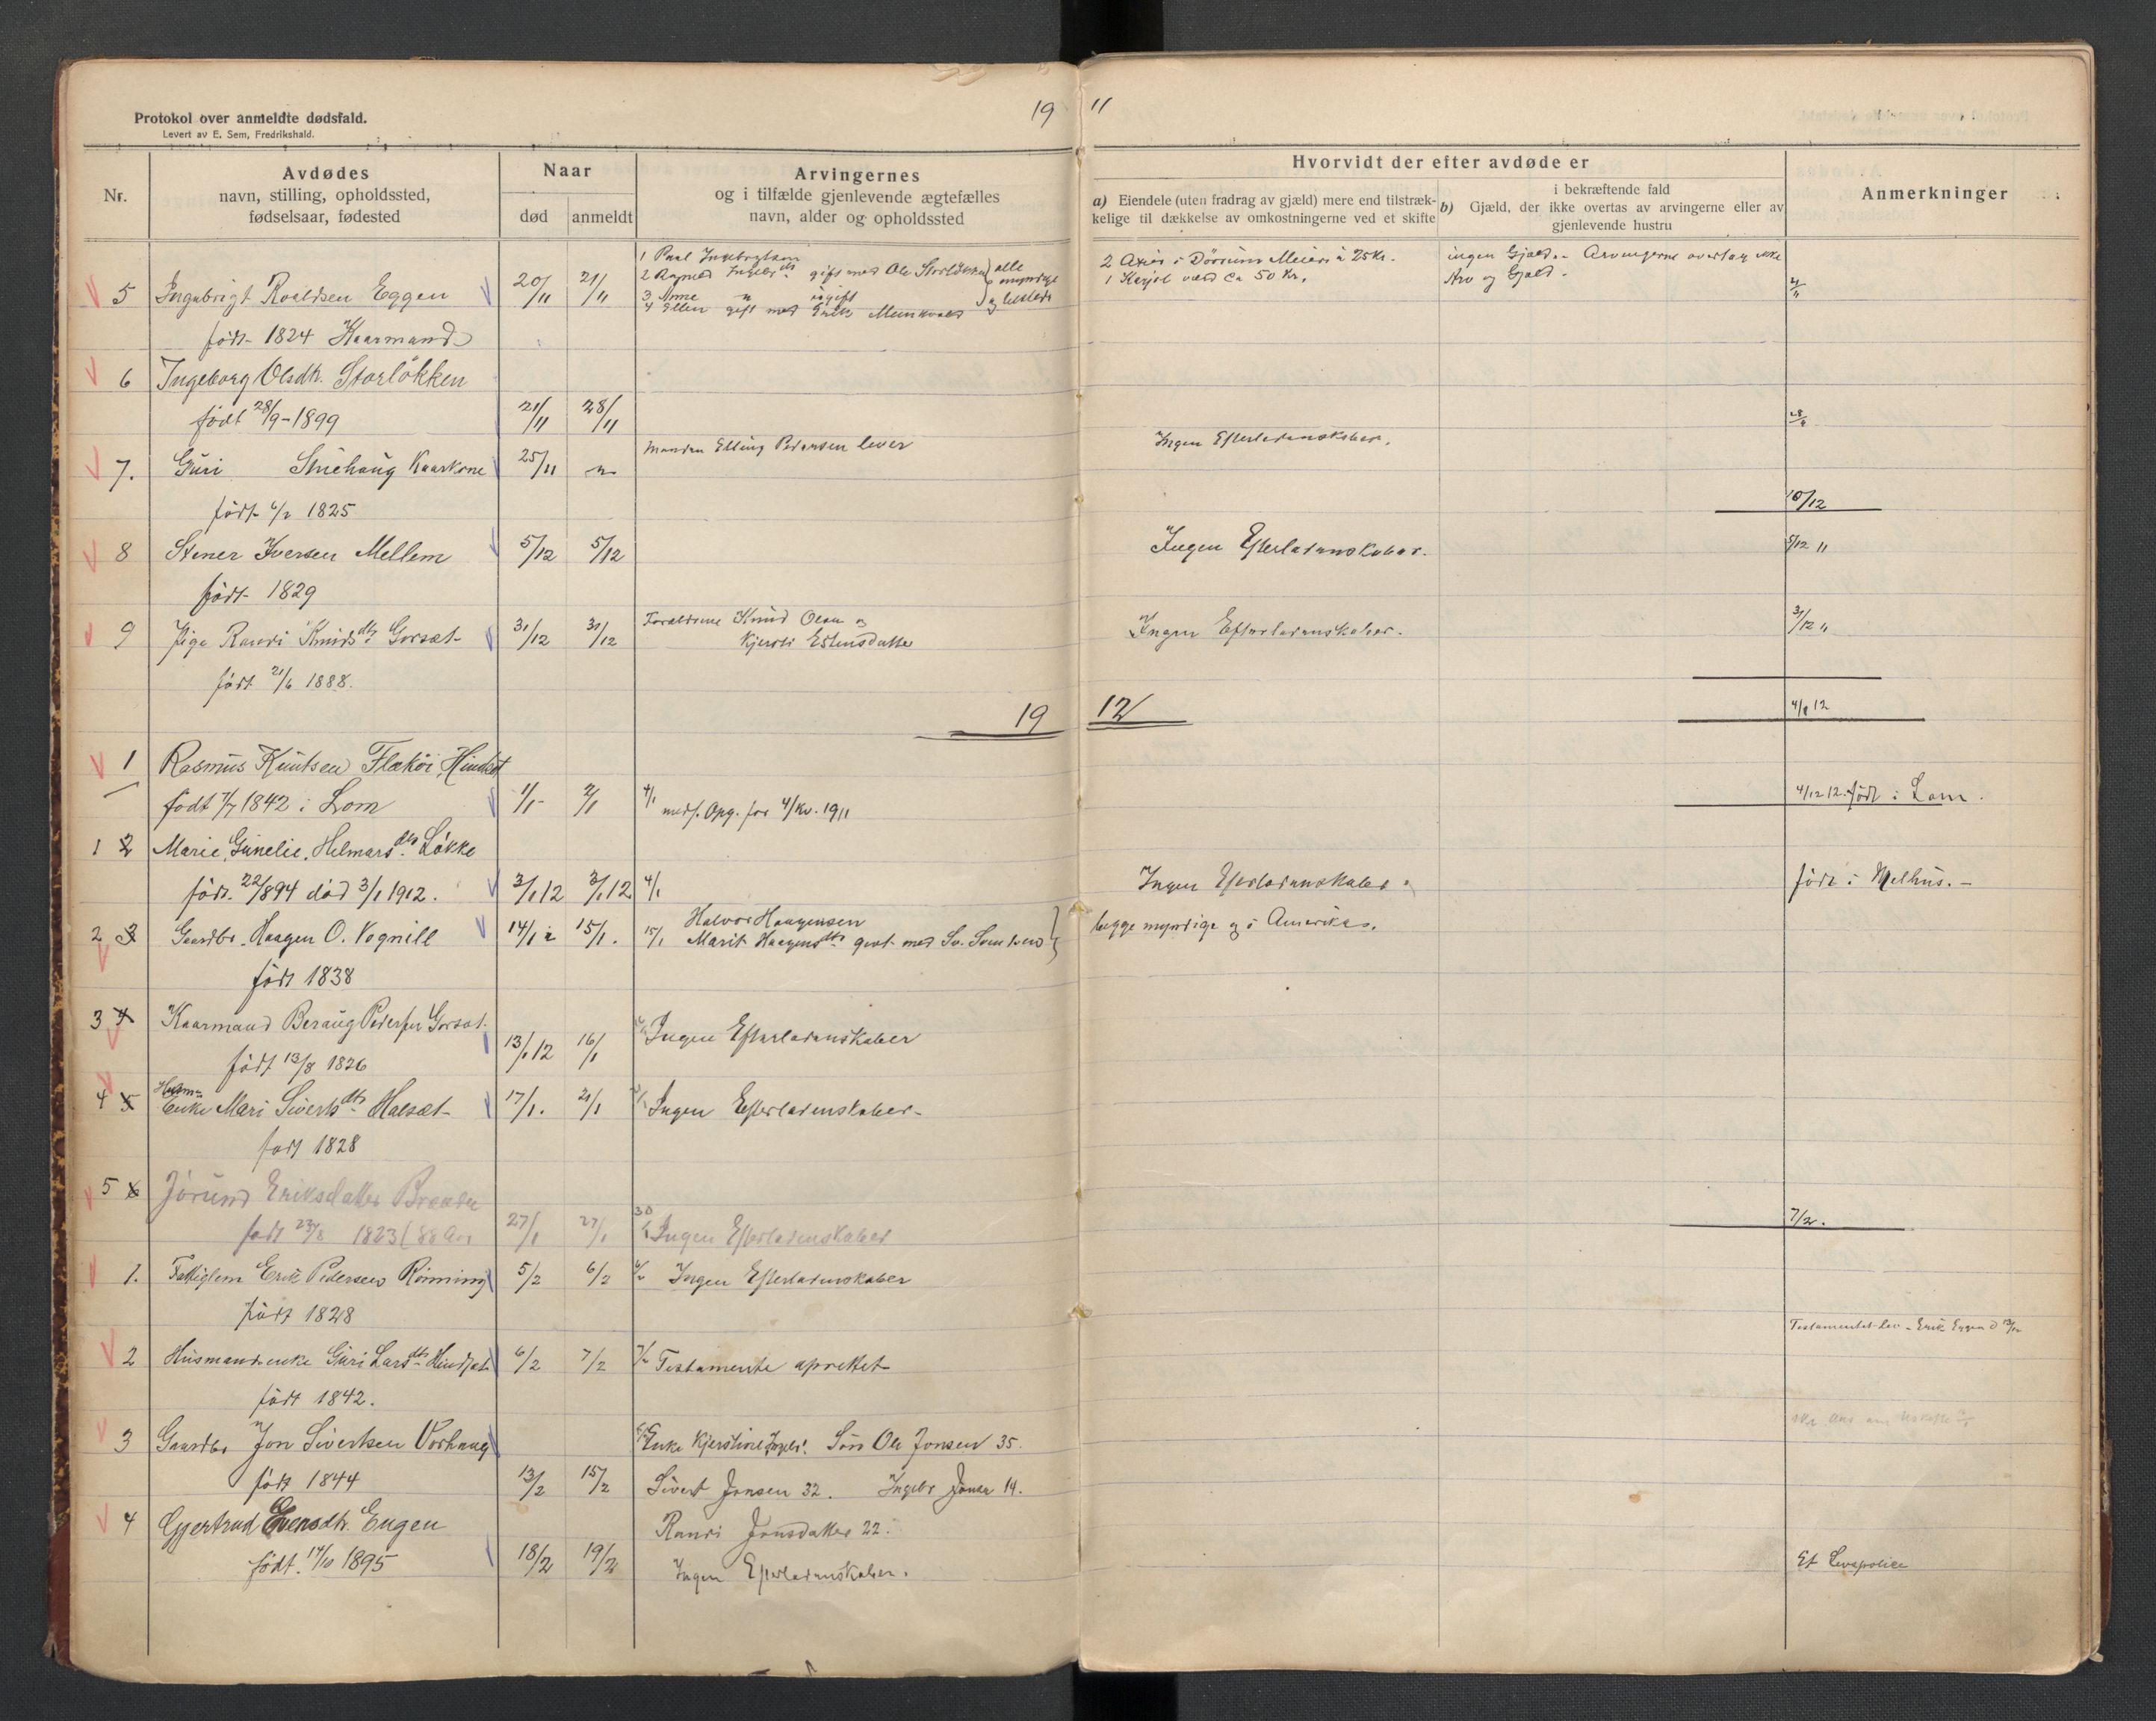 Protokol over anmeldte dødsfald.
Levert av E. Sem, Fredrikshald.
19 11
Nr.
Avdødes
navn, stilling, opholdssted,
fødselsaar, fødested
Naar
død
anmeldt
Arvingernes
og i tilfælde gjenlevende ægtefælles
navn, alder og opholdssted
Hvorvidt der efter avdøde er
a) Eiendele (uten fradrag av gjæld) mere end tilstræk-
kelige til dækkelse av omkostningerne ved et skifte
i bekræftende fald
b) Gjæld, der ikke overtas av arvingerne eller av
gjenlevende hustru
Anmerkninger
1 Paul Ingebrigtsen
2 Ragnild Ingebrdtr gift med Ole Storløkken } alle
myndige
3 Anne " ugift
og tilstede
4 Ellen gift med Erik
2 Axier i Meieri à 25 Kr.
1 Karjol værd ca 50 Kr.
ingen Gjæld. Arvingerne overtag ikke
Arv og Gjæld.
5 Ingebrigt Roaldsen Eggen 20/11 21/11
født 1824 Kaarmand
6 Ingeborg Olsdtr. Storløkken
født 28/9-1899 21/11 28/11
7. Guri Kaarkone 25/11 "
Manden Elling Pedersen lever
Ingen Efterladenskaber.
født 6/2 1825
10/12
8 Stener Iversen Mellem 5/12 5/12
Ingen Efterladenskaber.
5/12 11
født 1829
9 Pige Randi Knudsdtr Gorset 31/12 31/12
Forældrene Knud Olsen og
Kjersti Estensdatter
Ingen Efterladenskaber.
31/12 11
født 21/6 1888.
19 12
4/1 12
1 Rasmus Knutsen Flækøi, Hindset
født 7/7 1842 i Lom 1/1 2/1
4/1 medf. Opg. for 4/Kv. 1911
født i Lom.
1 2 Marie, Gunelie, Helmersdtr Løkke
født 22/894 død 3/1 1912. 3/1 12 3/1 12 4/1
Ingen Efterladenskaber
født i Melhus. -
2 3 Gaardbr. Haagen O. Vognill 14/1 15/1.
Halvor Haagensen
15/1 Marit Haagensdtr gift med Sv. }
begge myndige og i Amerika.
født 1838
3 4 Kaarmand Beraug Pedersen Gorset
født 13/8 1826 13/1 12 16/1
Ingen Efterladenskaber
4 5 Enke Mari Sivertsdtr Halset 17/1. 21/1
Ingen Efterladenskaber-
født 1828
5 6 Jorund Eriksdatter
født 23/8 1823 (88 Aar 27/1 27/1
30/1 Ingen Efterladenskaber
7/2.
1. Fattiglem Erik Pedersen Rønning 5/2 6/2
6/2 Ingen Efterladenskaber
født 1828
2 Husmandsenke Guri Larsdtr Hindset 6/2 7/2
7/2 Testamente oprettet
født 1842.
3 Gaardbr Jon Sivertsen Vorhaug
Enke Kjerstine Ingebr. Søn Ole Jonsen 35.
født 1844 13/2 15/2
Sivert Jonsen 32. Ingebr Jonsen 14.
4 Gjertrud Evensdtr. Engen
Randi Jonsdatter 22.
født 14/10 1895 18/2 19/2
Ingen Efterladenskaber.
Et Livspolice